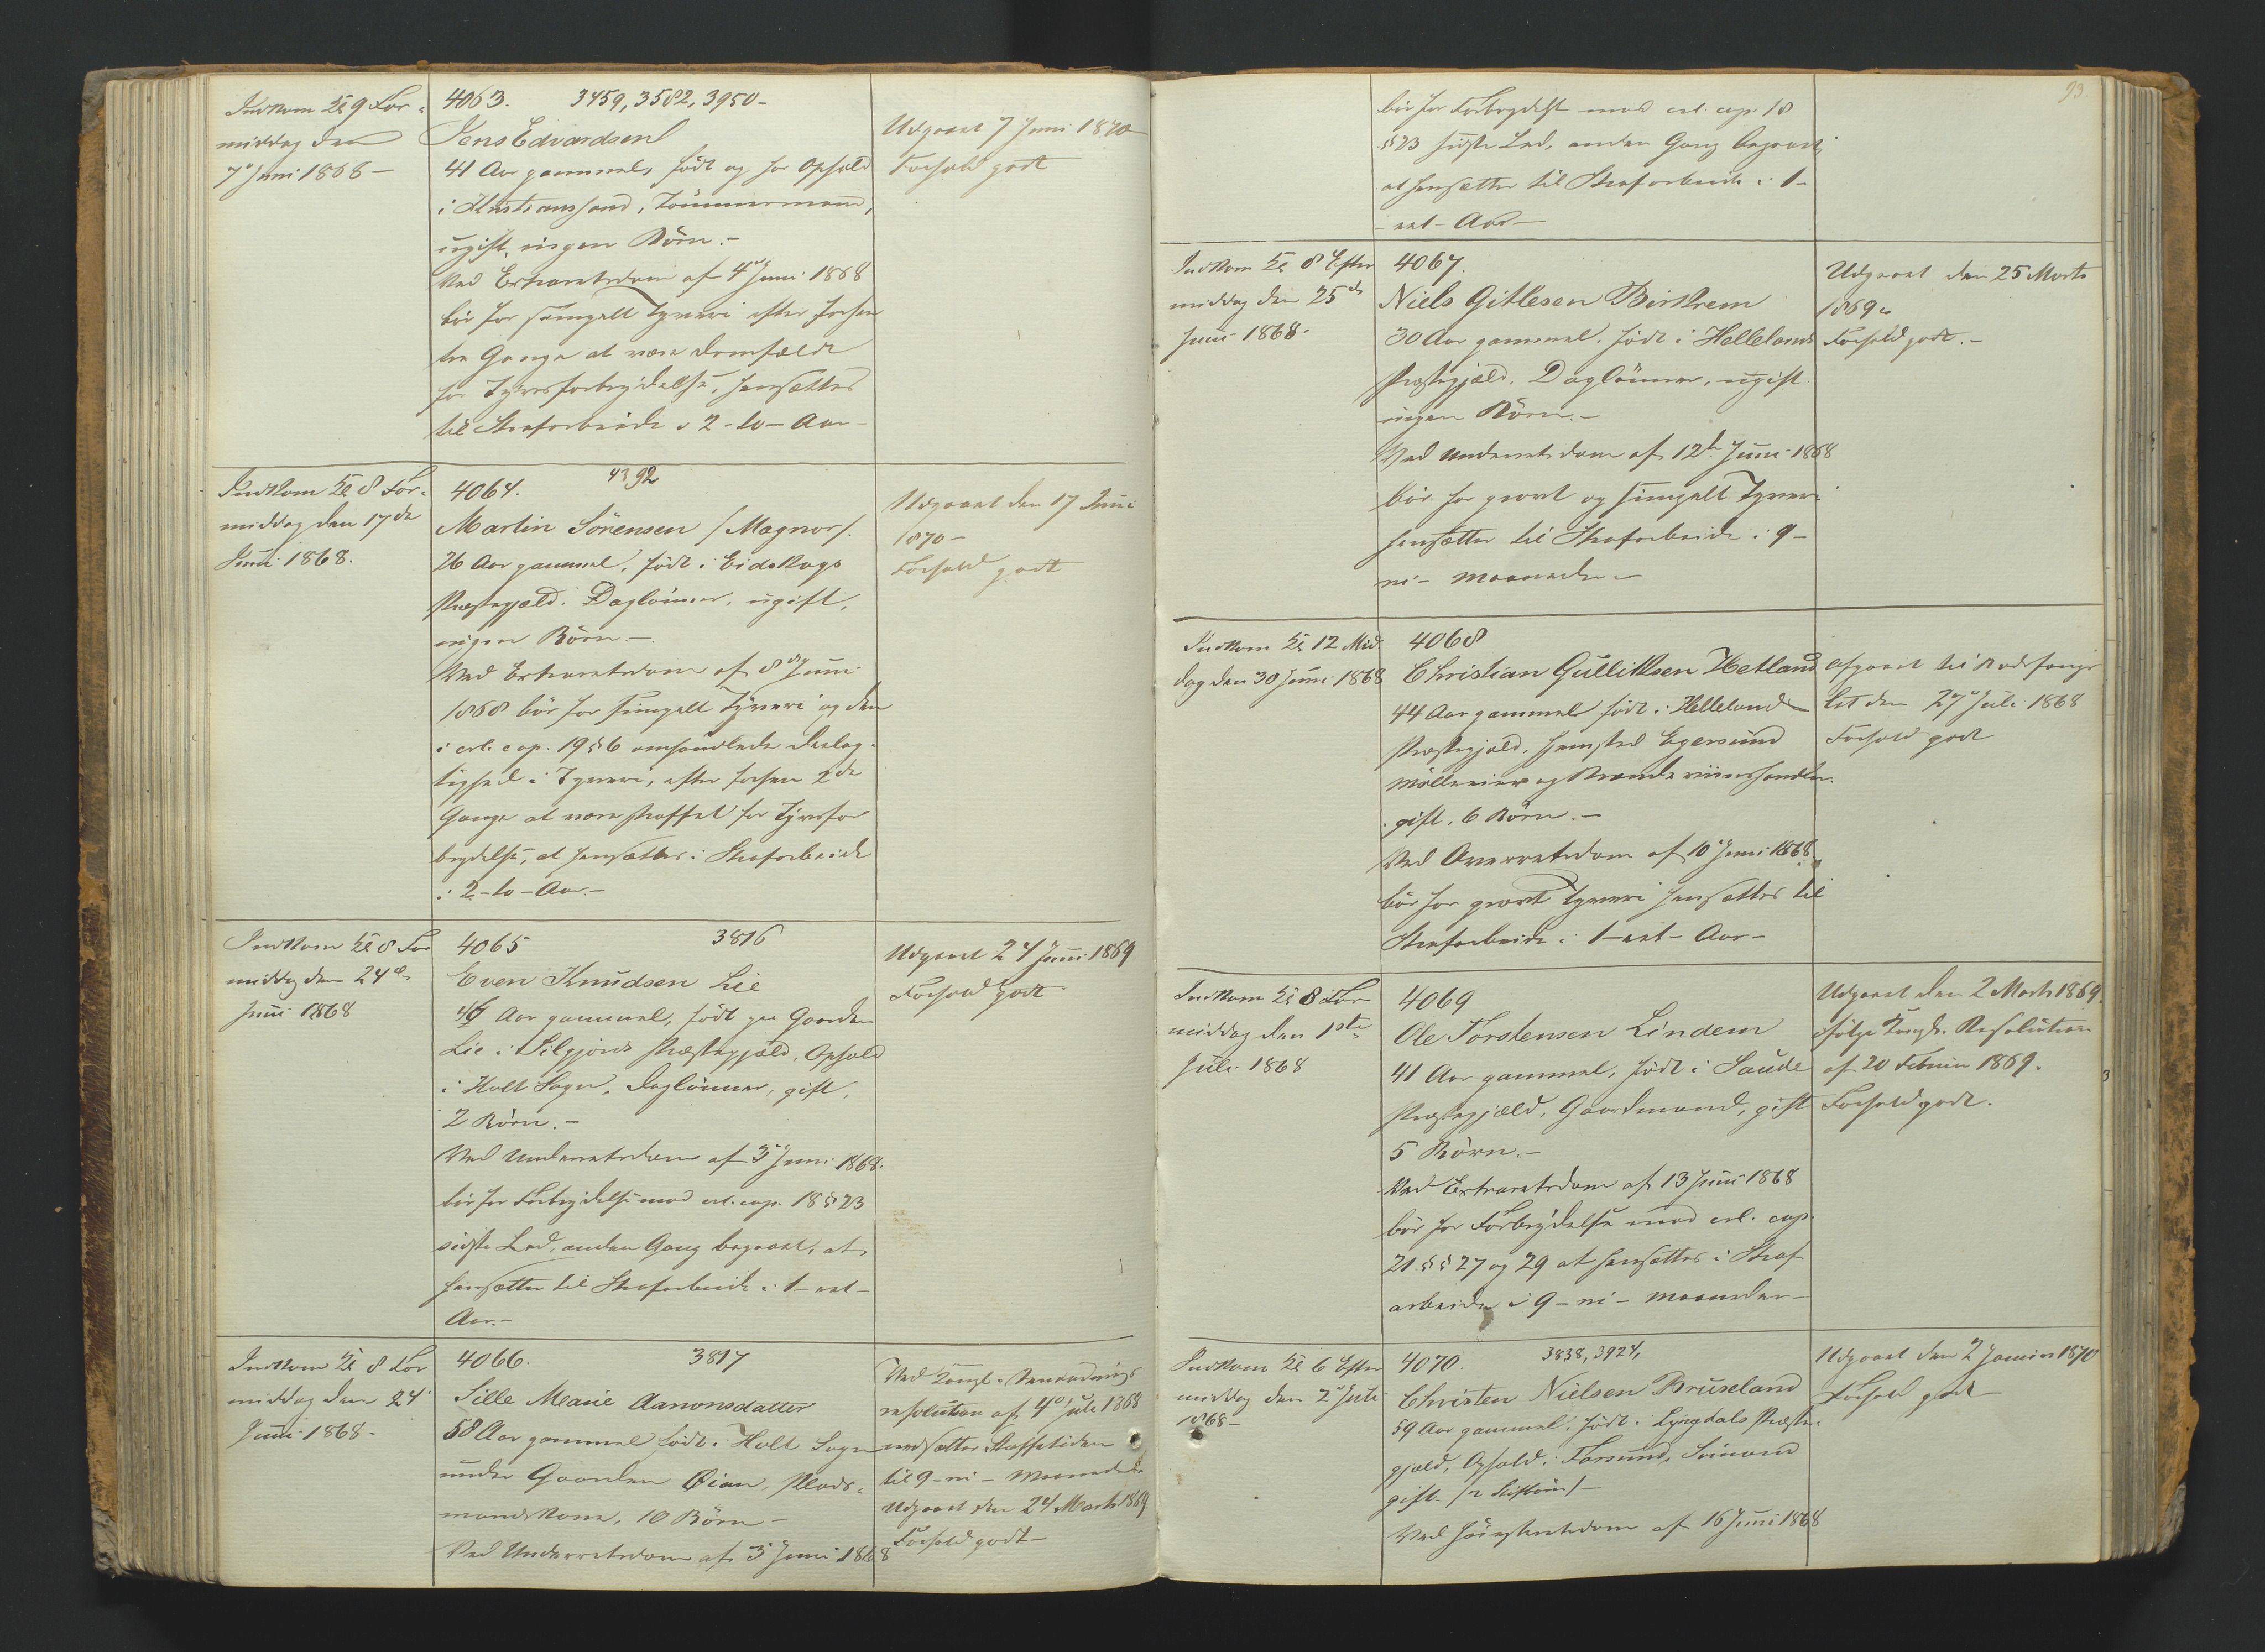 Indkom Kl 9 For-
middag den
7' Juni 1868 -
4063. 3459, 3582, 3950-
Jens Edvardsen
41 Aar gammel, født og har Ophold
i Kristianssand, Tømmermand,
ugift, ingen Børn.-
Ved Extraretsdom af 4' Juni 1868
bør for simpelt Tyveri efter forhen
tre Gange at være domfældt
for Tyvsforbrydelse, hensættes
til Strafarbeide i 2-to-Aar-
Udgaaet 7 Juni 1870
Forhold godt
Indkom Kl 8 For-
middag den 17de
Juni 1868.
4064. 4392
Martin Sørensen /Magnor/.
26 Aar gammel, født i Eidskogs
Præstegjæld. Daglønner, ugift,
ingen Børn.-
Ved Extraretsdom af 8de Juni
1868 bør for simpelt Tyveri og den
i crl. cap. 19 § 6 omhandlede Deelag-
tighed i Tyveri, efter forhen 2de
Gange at være straffet for Tyvsfor
brydelse, at hensættes i Strafarbeide
i 2-to-Aar.-
Udgaaet den 17 Juni
1870-
Forhold godt
Indkom Kl 8 For
middag den 24de
Juni 1868
4065 3816
Even Knudsen Lie
Aar gammel, født paa Gaarden
Lie i Silgjords Præstegjæld, Ophold
i Holt Sogn, Daglønner, gift,
2 Børn.-
Ved Underretsdom af 3' Juni 1868.
bør for Forbrydelse mod crl. cap. 18 § 23
sidste Led, anden Gang begaaet, at
hensættes til Strafarbeide i 1-eet-
Aar.-
Udgaaet 24 Juni 1869
Forhold godt
Indkom Kl 8 For
middag den 24'
Juni 1868-
4066. 3817
Sille Marie Aanonsdatter
58 Aar gammel født i Holt Sogn
under Gaarden Øian, Plads-
mandskone, 10 Børn-
Ved Underretsdom af 3' Juni 1868
Ved Kongl. Benaadnings
resolution af 4' Juli 1868
nedsættes Straffetiden
til 9-ni-Maaneder
Udgaaet den 24 Marts 1869
Forhold godt-
93.
bør for Forbrydelse mod crl. cap. 18
§ 23 sidste Led, anden Gang begaaet,
at hensættes til Strafarbeide i 1-
eet-Aar-
Indkom Kl 8 Efter
middag den 25de
Juni 1868.
4067.
Niels Gitlesen Birkrem
30 Aar gammel. født i Hellelands
Præstegjæld. Daglønner, ugift
ingen Børn.-
Ved Underretsdom af 12te Juni 1868
bør for grovt og simpelt Tyveri
hensættes til Strafarbeide i 9-
ni-Maaneder-
Udgaaet den 25 Marts
1869.
Forhold godt.-
Indkom Kl 12 Mid-
dag den 30 Juni 1868
4068
Christian Gulliksen Hetland
44 Aar gammel født i Hellelands
Præstegjæld, Hjemsted Egersund
Mølleeier og Brændeviinshandler.
gift, 6 Børn.-
Ved Overretsdom af 10' Juni 1868
bør for grovt Tyveri hensættes til
Strafarbeide i 1-eet-Aar-
Afgaaet til Bodsfængs
let den 27' Juli 1868
Forhold godt
Indkom Kl 8 For
middag den 1ste
Juli 1868
4069
Ole Torstensen Lindem
41 Aar gammel, født i Saude
Præstegjæld, Gaardmand, gift
5 Børn.-
Ved Extraretsdom af 13 Juni 1868
bør for Forbrydelse mod crl. cap.
21 §§ 27 og 29 at hensættes i Straf
arbeide i 9-ni-Maaneder-
Udgaaet den 2 Marts 1869.
ifølge Kongl. Resolution
af 20 Februar 1869.
Forhold godt.
3
Indkom Kl 6 Efter
middag den 2' Juli
1868-
4070. 3838, 3924,
Christen Nielsen Bruseland
59 Aar gammel, født i Lyngdals Præste-
gjæld, Ophold i Farsund, Sømand
gift.
Ved Høiesteretsdom af 16 Juni 1868
Udgaaet den 2 Januar 1870
Forhold godt